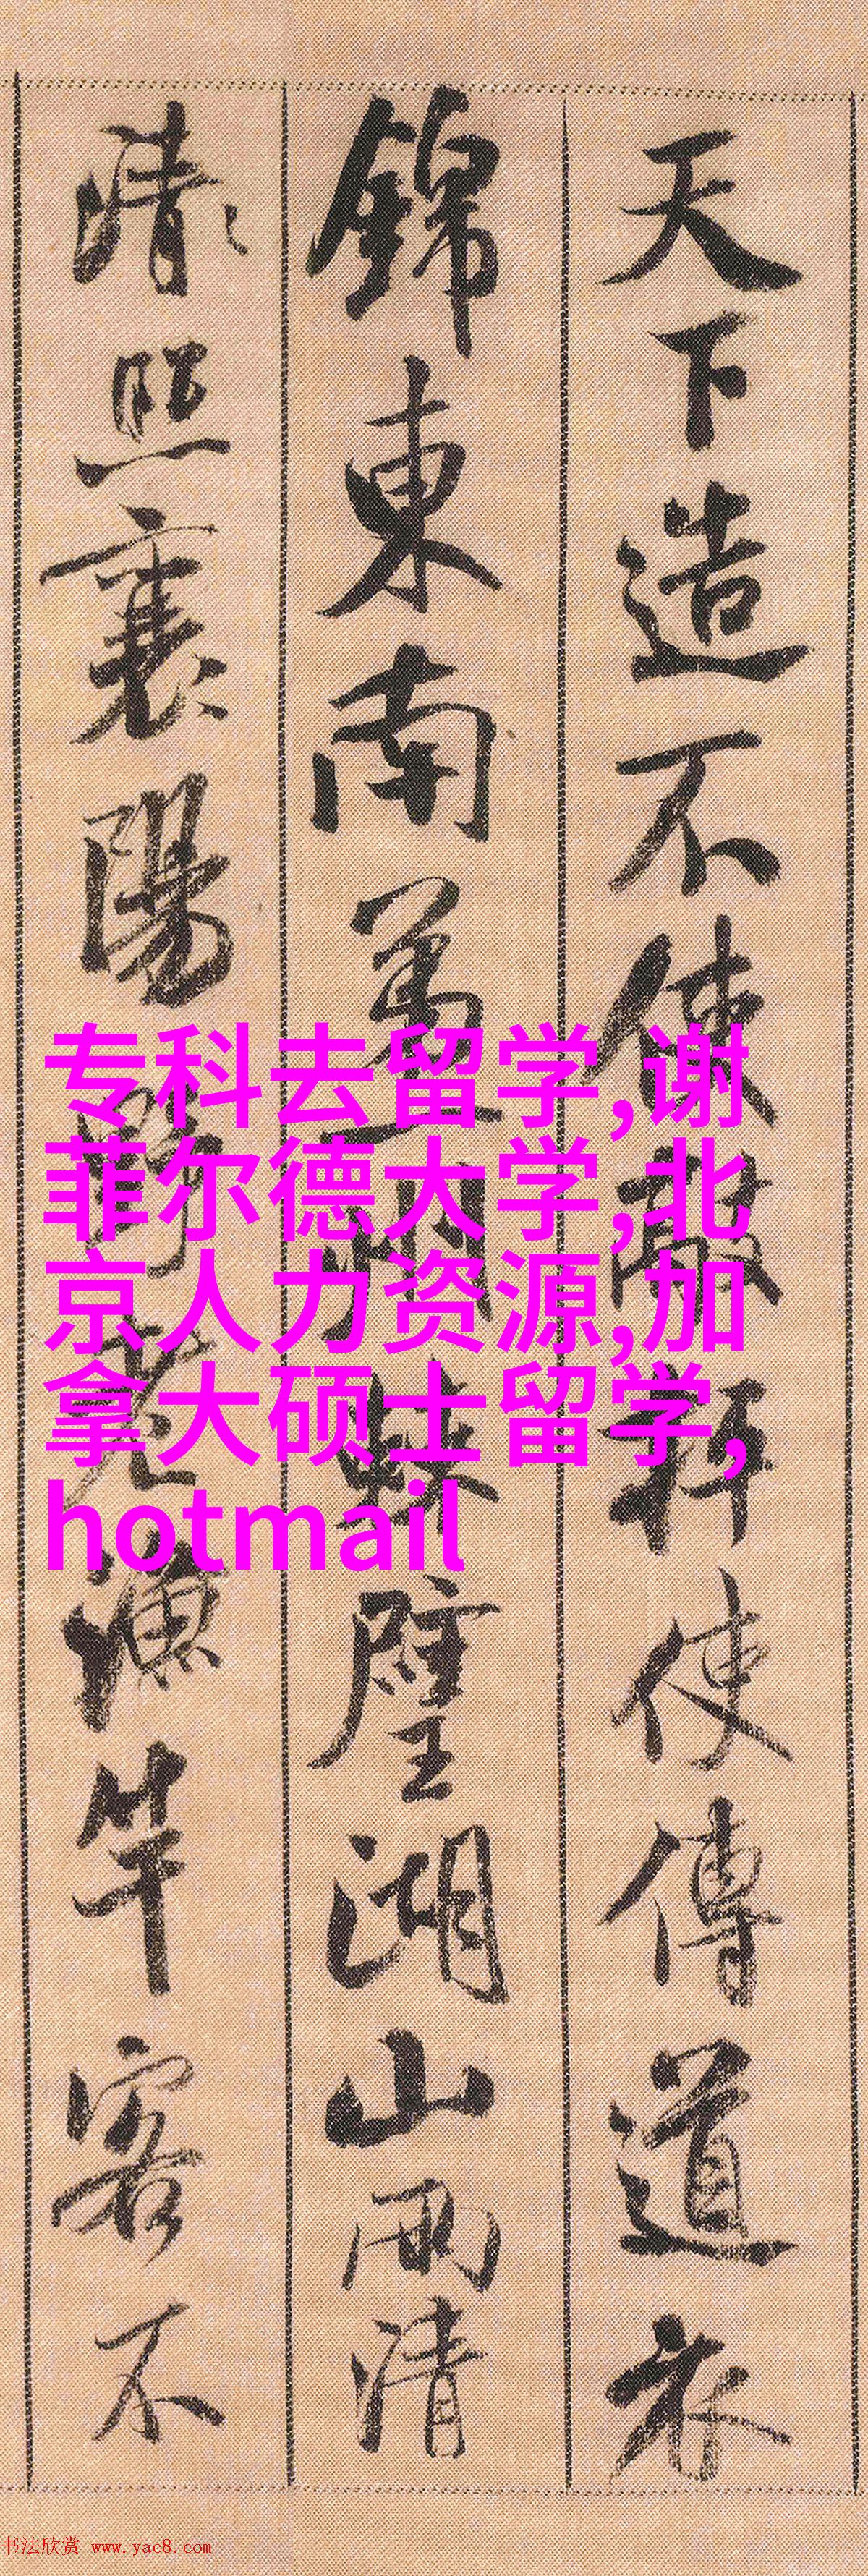 天下造不使敲科使傳道衣
錦東南第一州棘璧湖山兩清
清照襄陽野老漁竿客不
专科去留学,谢
菲尔德大学,北
京人力资源,加
拿大硕士留学,
hotmail
书法欣赏 www.yac8.com